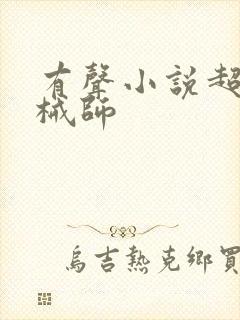 有聲小說超
械師
烏吉熱克鄉買